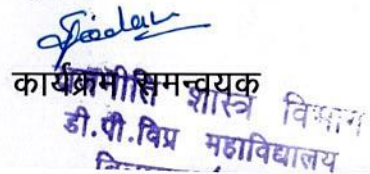 कार्यक्रम समन्वयक
शास्त्र विभाग
डी.पी.विप्र महाविद्यालय